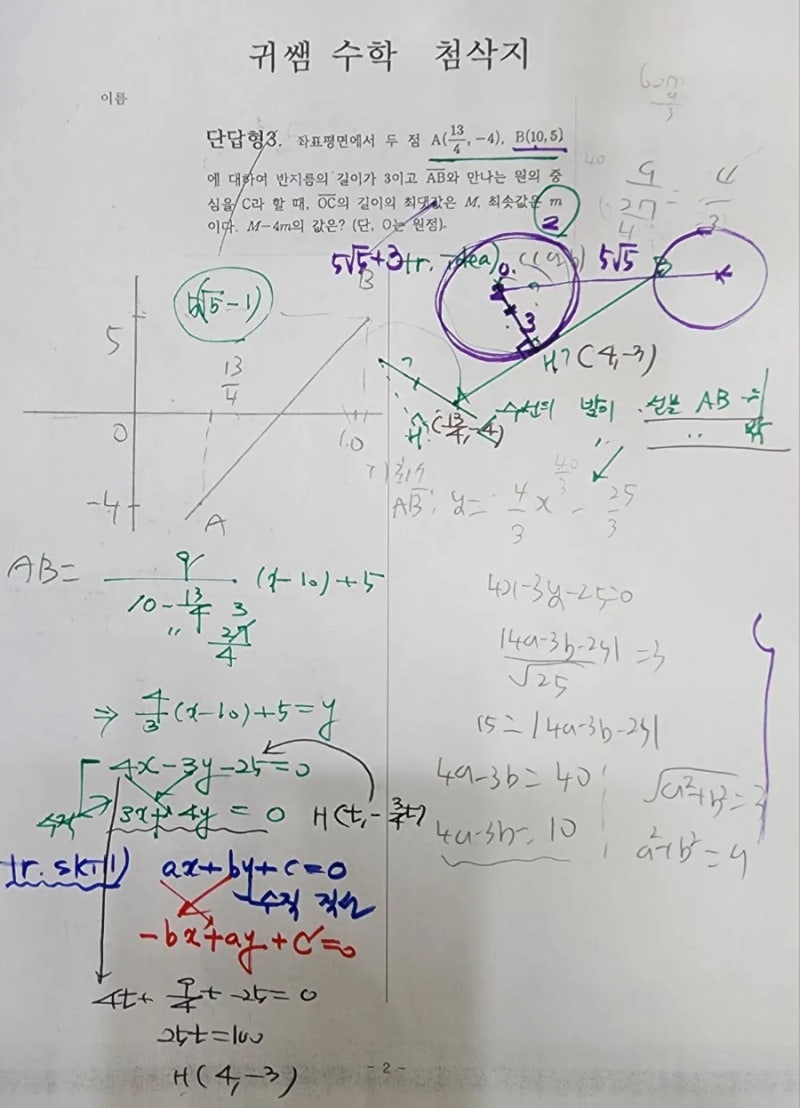 귀쌤 수학 첨삭지
이름
단답형3. 좌표평면에서 두 점 A(13/4, -4), B(10, 5)
에 대하여 반지름의 길이가 3이고 AB와 만나는 원의 중
심을 C라 할 때, OC의 길이의 최댓값은 M, 최솟값은 m
이다. M-4m의 값은? (단, O는 원점).
2
5√5+3
tr. idea)
C(a, b)
5√5
B
5√5-1)
B
5
13/4
0
10
-4
A
0
2
3
H? (4, -3)
A
H?
(13/4, -4)
수선의 발이 선분 AB
〃
AB: y= 4/3 x - 25/3
40/3
9
27/4
=
4/3
40
AB= 9/(10-13/4) (x-10)+5
〃 27/4
3
⇒ 4/3(x-10)+5=y
4x-3y-25=0
3x+4y=0
H(t, -3/4t)
tr. skill)
ax+by+c=0
수직 직선
-bx+ay+c'=0
4t+9/4t-25=0
25t=100
H(4, -3)
4x-3y-25=0
|4a-3b-25|/√25 =3
15=|4a-3b-25|
4a-3b=40
4a-3b=10
√a²+b²=3
a²+b²=9
- 2 -